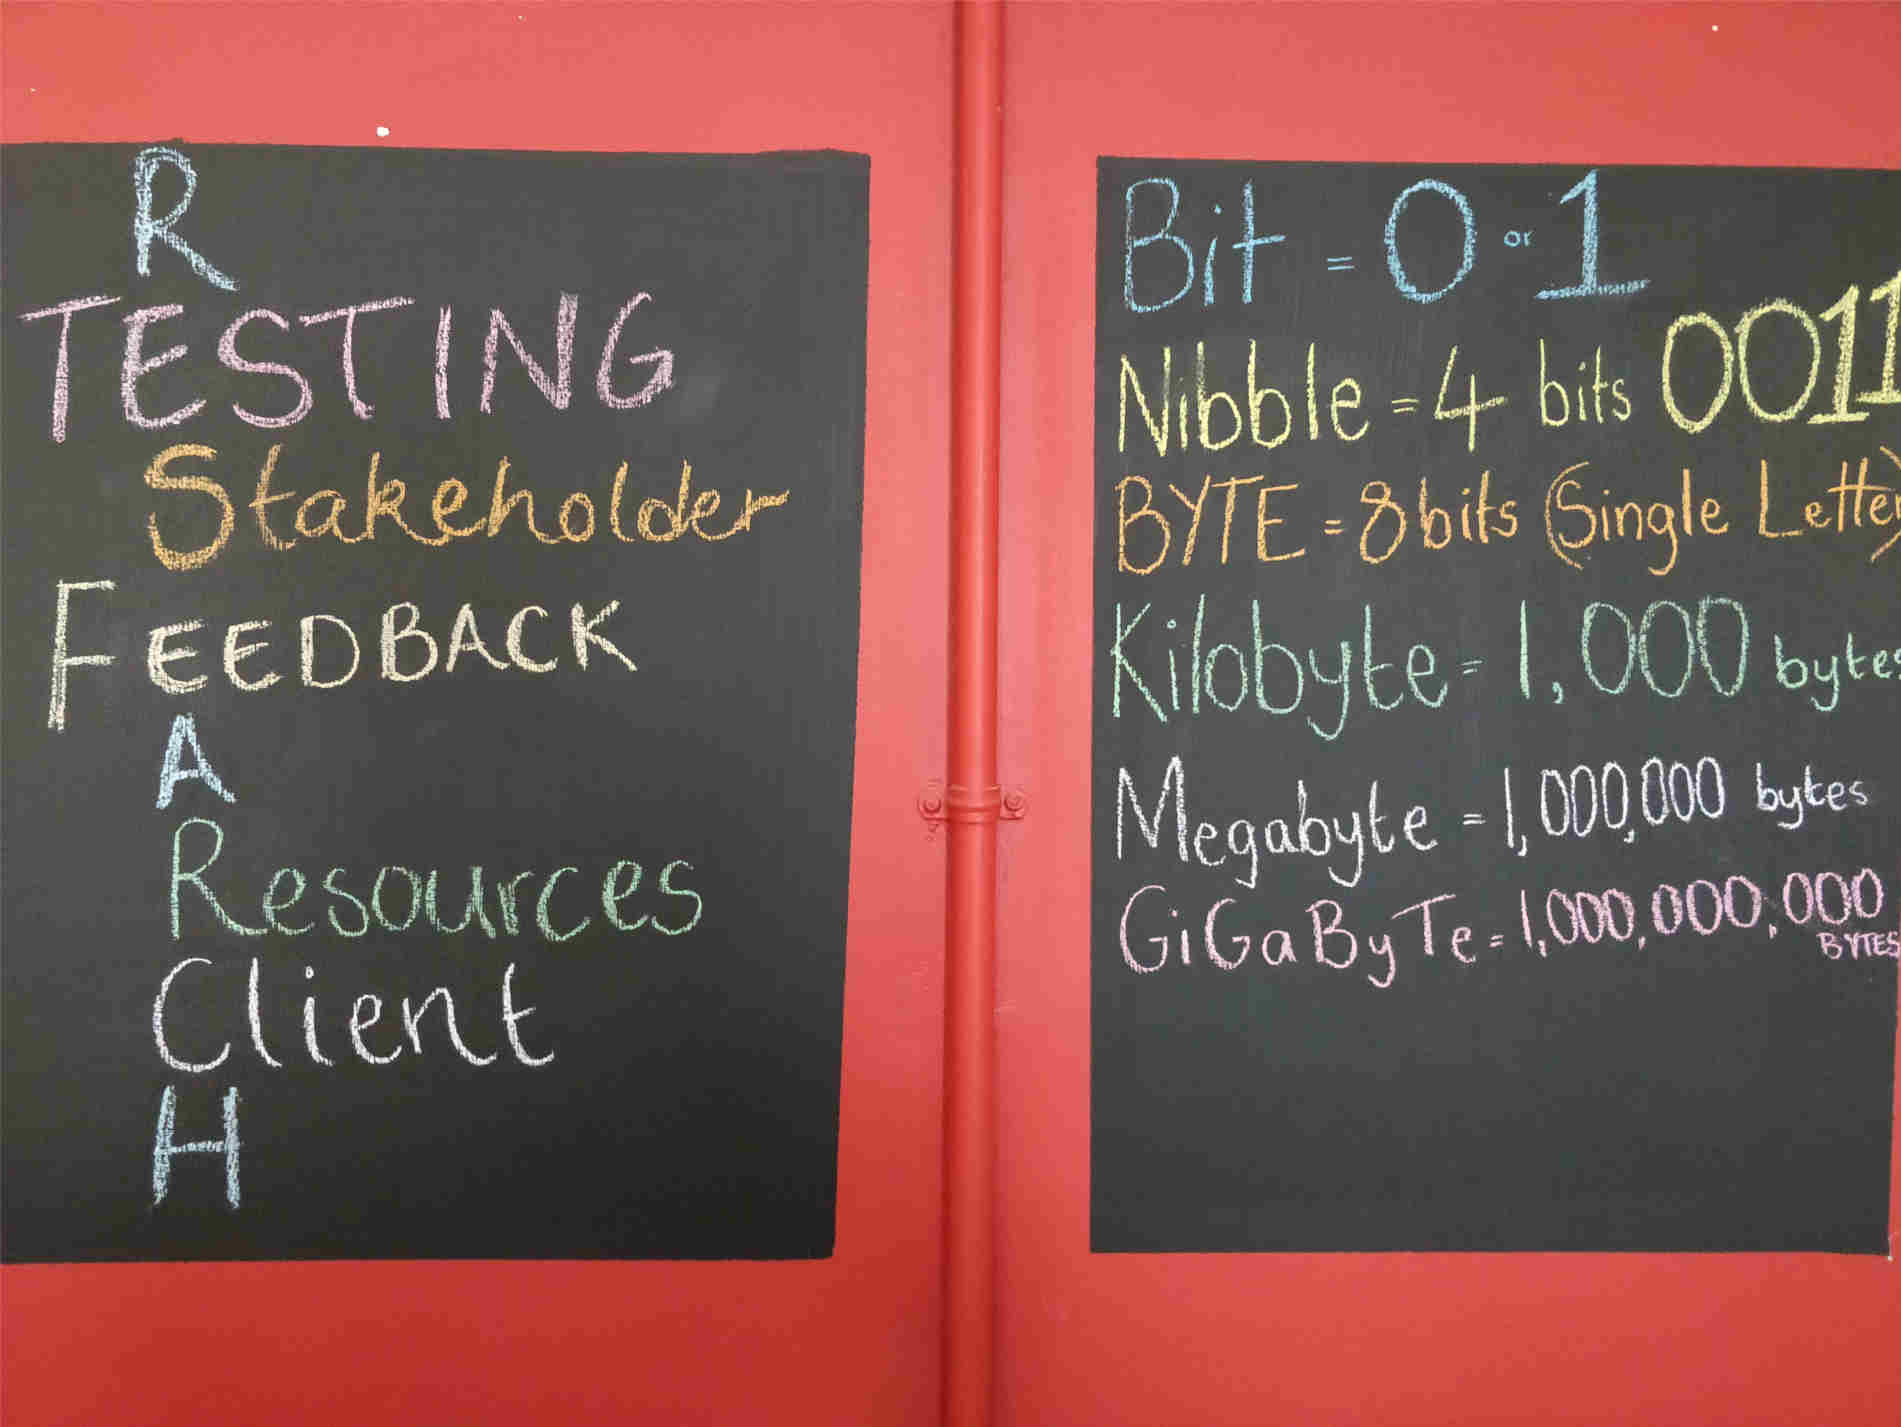 R
TESTING
Stakeholder
FEEDBACK
A
Resources
Client
H
Bit = 0 or 1
Nibble = 4 bits 0011
BYTE = 8 bits (Single Letter)
Kilobyte = 1,000 bytes
Megabyte = 1,000,000 bytes
GiGaByTe = 1,000,000,000
BYTES